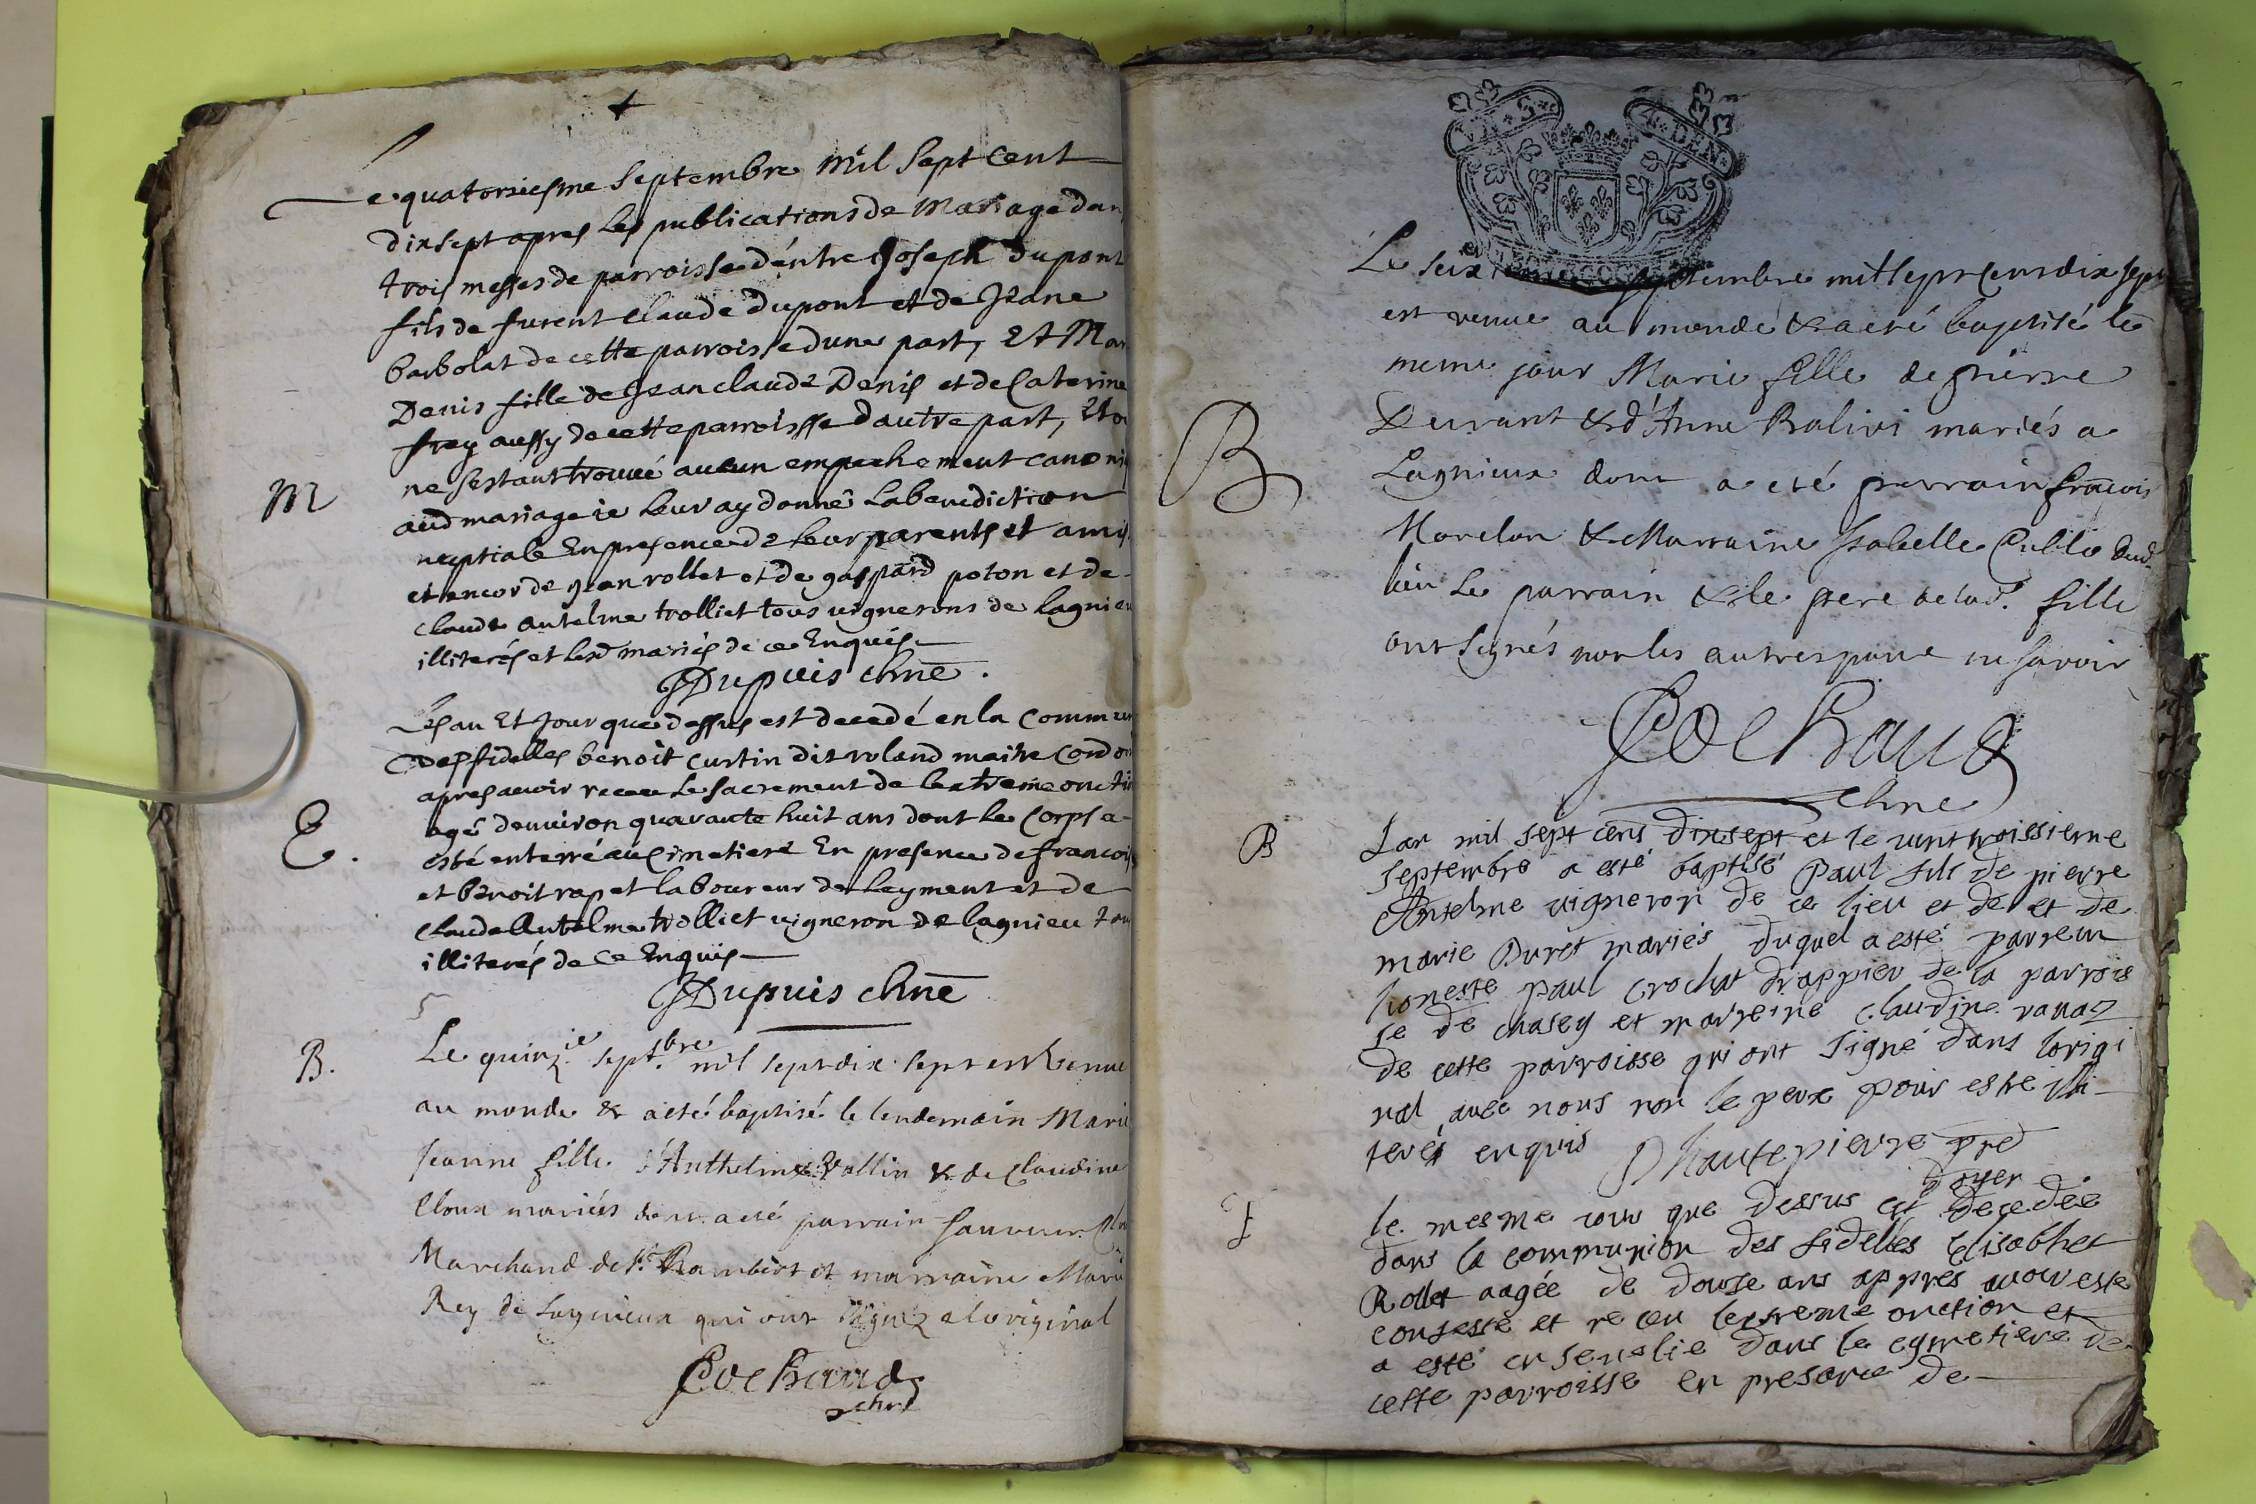 Le quatorziesme Septembre Mil Sept Cent
dixsept apres les publications de Mariage dan
trois messes de parroisse d'entre Joseph Dupont
fils de furent Claude Dupont et de Jeane
barbolat de cette parroisse dune part, Et Mar
Denis fille de Jean claude Denis et de Caterine
frey aussy de cette parroisse dautre part, Et
ne sestant trouué aucun empechement canoni
M
aud mariage ie leur ay donné la benediction
neuptiale En presence de leur parents et amis
et encor de jean rollet et de gaspard poton et de
claude antelme trolliet tous uignerons de lagnieu
illiterés et lesd mariés de ce Enquis
Dupuis chne
Lesan Et Jour que dessus est decedé en la Commun
des fidelles benoit curtin dit roland maitre Cordon
apres auoir receu le sacrement de lextreme onction
E.
agé denuiron quarante huit ans dont le Corps a
esté enterré au Cimetiere En presence de francois
et benoit rapet laboureur de leyment et de
claude Antelme trolliet uigneron de lagnieu tou
illiterés de ce Enquis
Dupuis chne
B.
Le quinzie. septbre. mil sept dix sept est Venue
au monde & a eté baptisé le lendemain Marie
Jeanne fille d'Anthelme Vollin & de Claudine
Cloux mariés dont a eté parrain sauveur
Marchand de St. Rambert et marraine Marie
Rey de Lagnieux qui ont signez a loriginal
Cochaud
chne
VI · S · 4 · DEN ·
Le seizieme septembre mil sept cens dix sept
est venue au monde & a eté baptisé le
meme jour Marie fille de pierre
B
Durant & d'Anne Balivi mariés a
Lagnieux dont a eté parrain françois
Morelon & Marraine Isabelle Cullio dud.
lieu Le parrain & le pere de lad. fille
ont signés non les autres pour ne savoir
Cochaud
chne
B
Lan mil sept cens dixsept et le vint troissieme
septembre a esté baptisé Paul fils de pierre
Antelme vigneron de ce lieu et de et de
marie Duret mariés duquel a esté parrein
honeste paul crochat drappier de la parrois
se de chasey et marreine claudine ravaz
de cette parroisse qui ont signé dans lorigi
nal avec nous non le pere pour estre illi
terés enquis Dhautepierre pre
doyen
le mesme iour que dessus est decedée
dans la communion des fidelles Elisabhet
Rollet aagée de douse ans appres avoir esté
confessé et receu lextreme onction et
a esté ensevelie dans le cymetiere de
cette parroisse en presance de